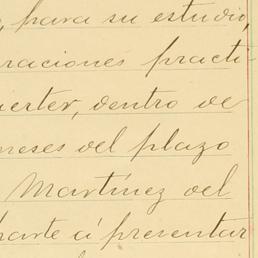 para su estudio,
raciones practi-
dentro de
meses del plazo
Martínez del
parte á presentar